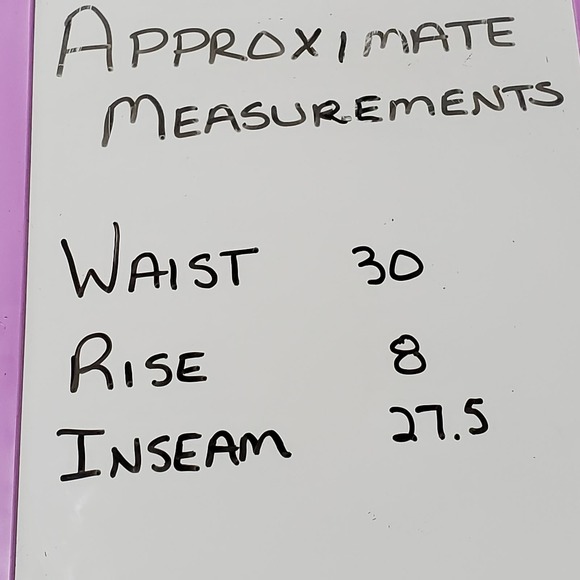 APPROXIMATE
MEASUREMENTS
WAIST 30
RISE 8
INSEAM 27.5